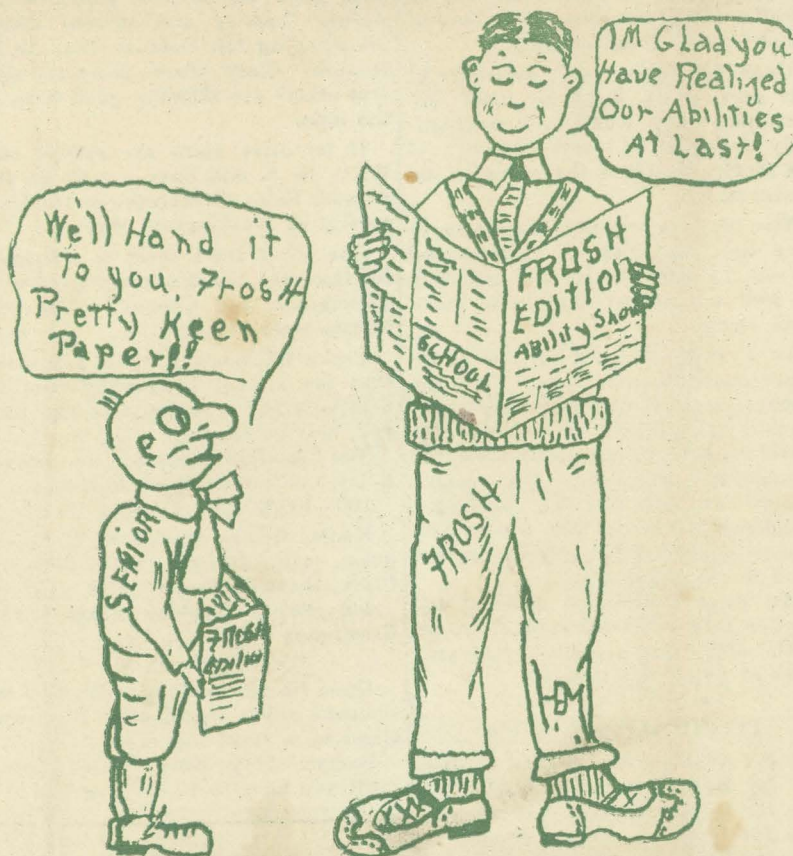 We'll Hand it
To you, Frosh
Pretty Keen
Paper!!
IM Glad you
Have Realized
Our Abilities
At Last!
FROSH
EDITION
Ability Show
SCHOOL
FROSH
SENIOR
FROSH
Edition